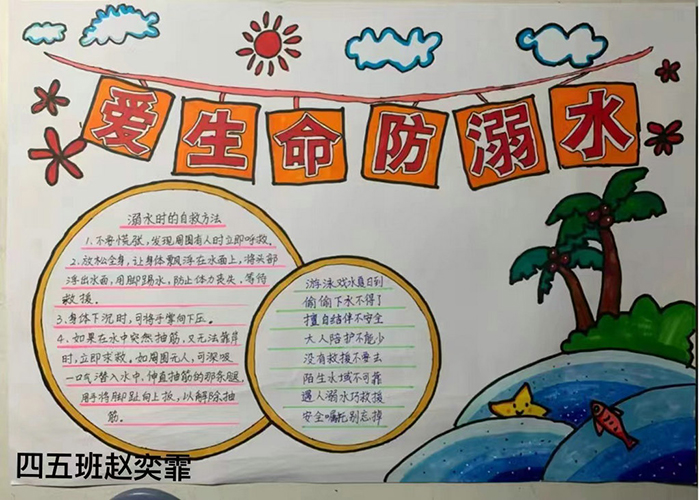 爱生命防溺水
溺水时的自救方法
1.不要慌张,发现周围有人时立即呼救。
2.放松全身,让身体飘浮在水面上,将头部
浮出水面,用脚踢水,防止体力丧失、等待
救援。
3.身体下沉时,可将手掌向下压。
4.如果在水中突然抽筋,又无法靠岸
时,立即求救。如周围无人,可深吸
一口气潜入水中、伸直抽筋的那条腿,
用手将脚趾向上扳,以解除抽
筋。
游泳戏水夏日到
偷偷下水不得了
擅自结伴不安全
大人陪护不能少
没有救援不要去
陌生水域不可靠
遇人溺水巧救援
安全嘱托别忘掉
四五班赵奕霏